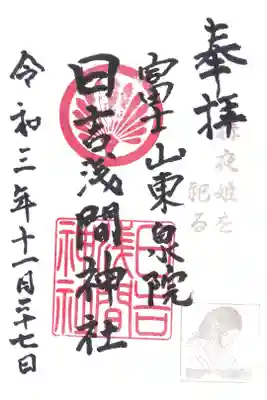 奉拝
夜姫を
祀る
富士山東泉院
日吉浅間神社
日吉
浅間
神社
令和三年十一月二十七日